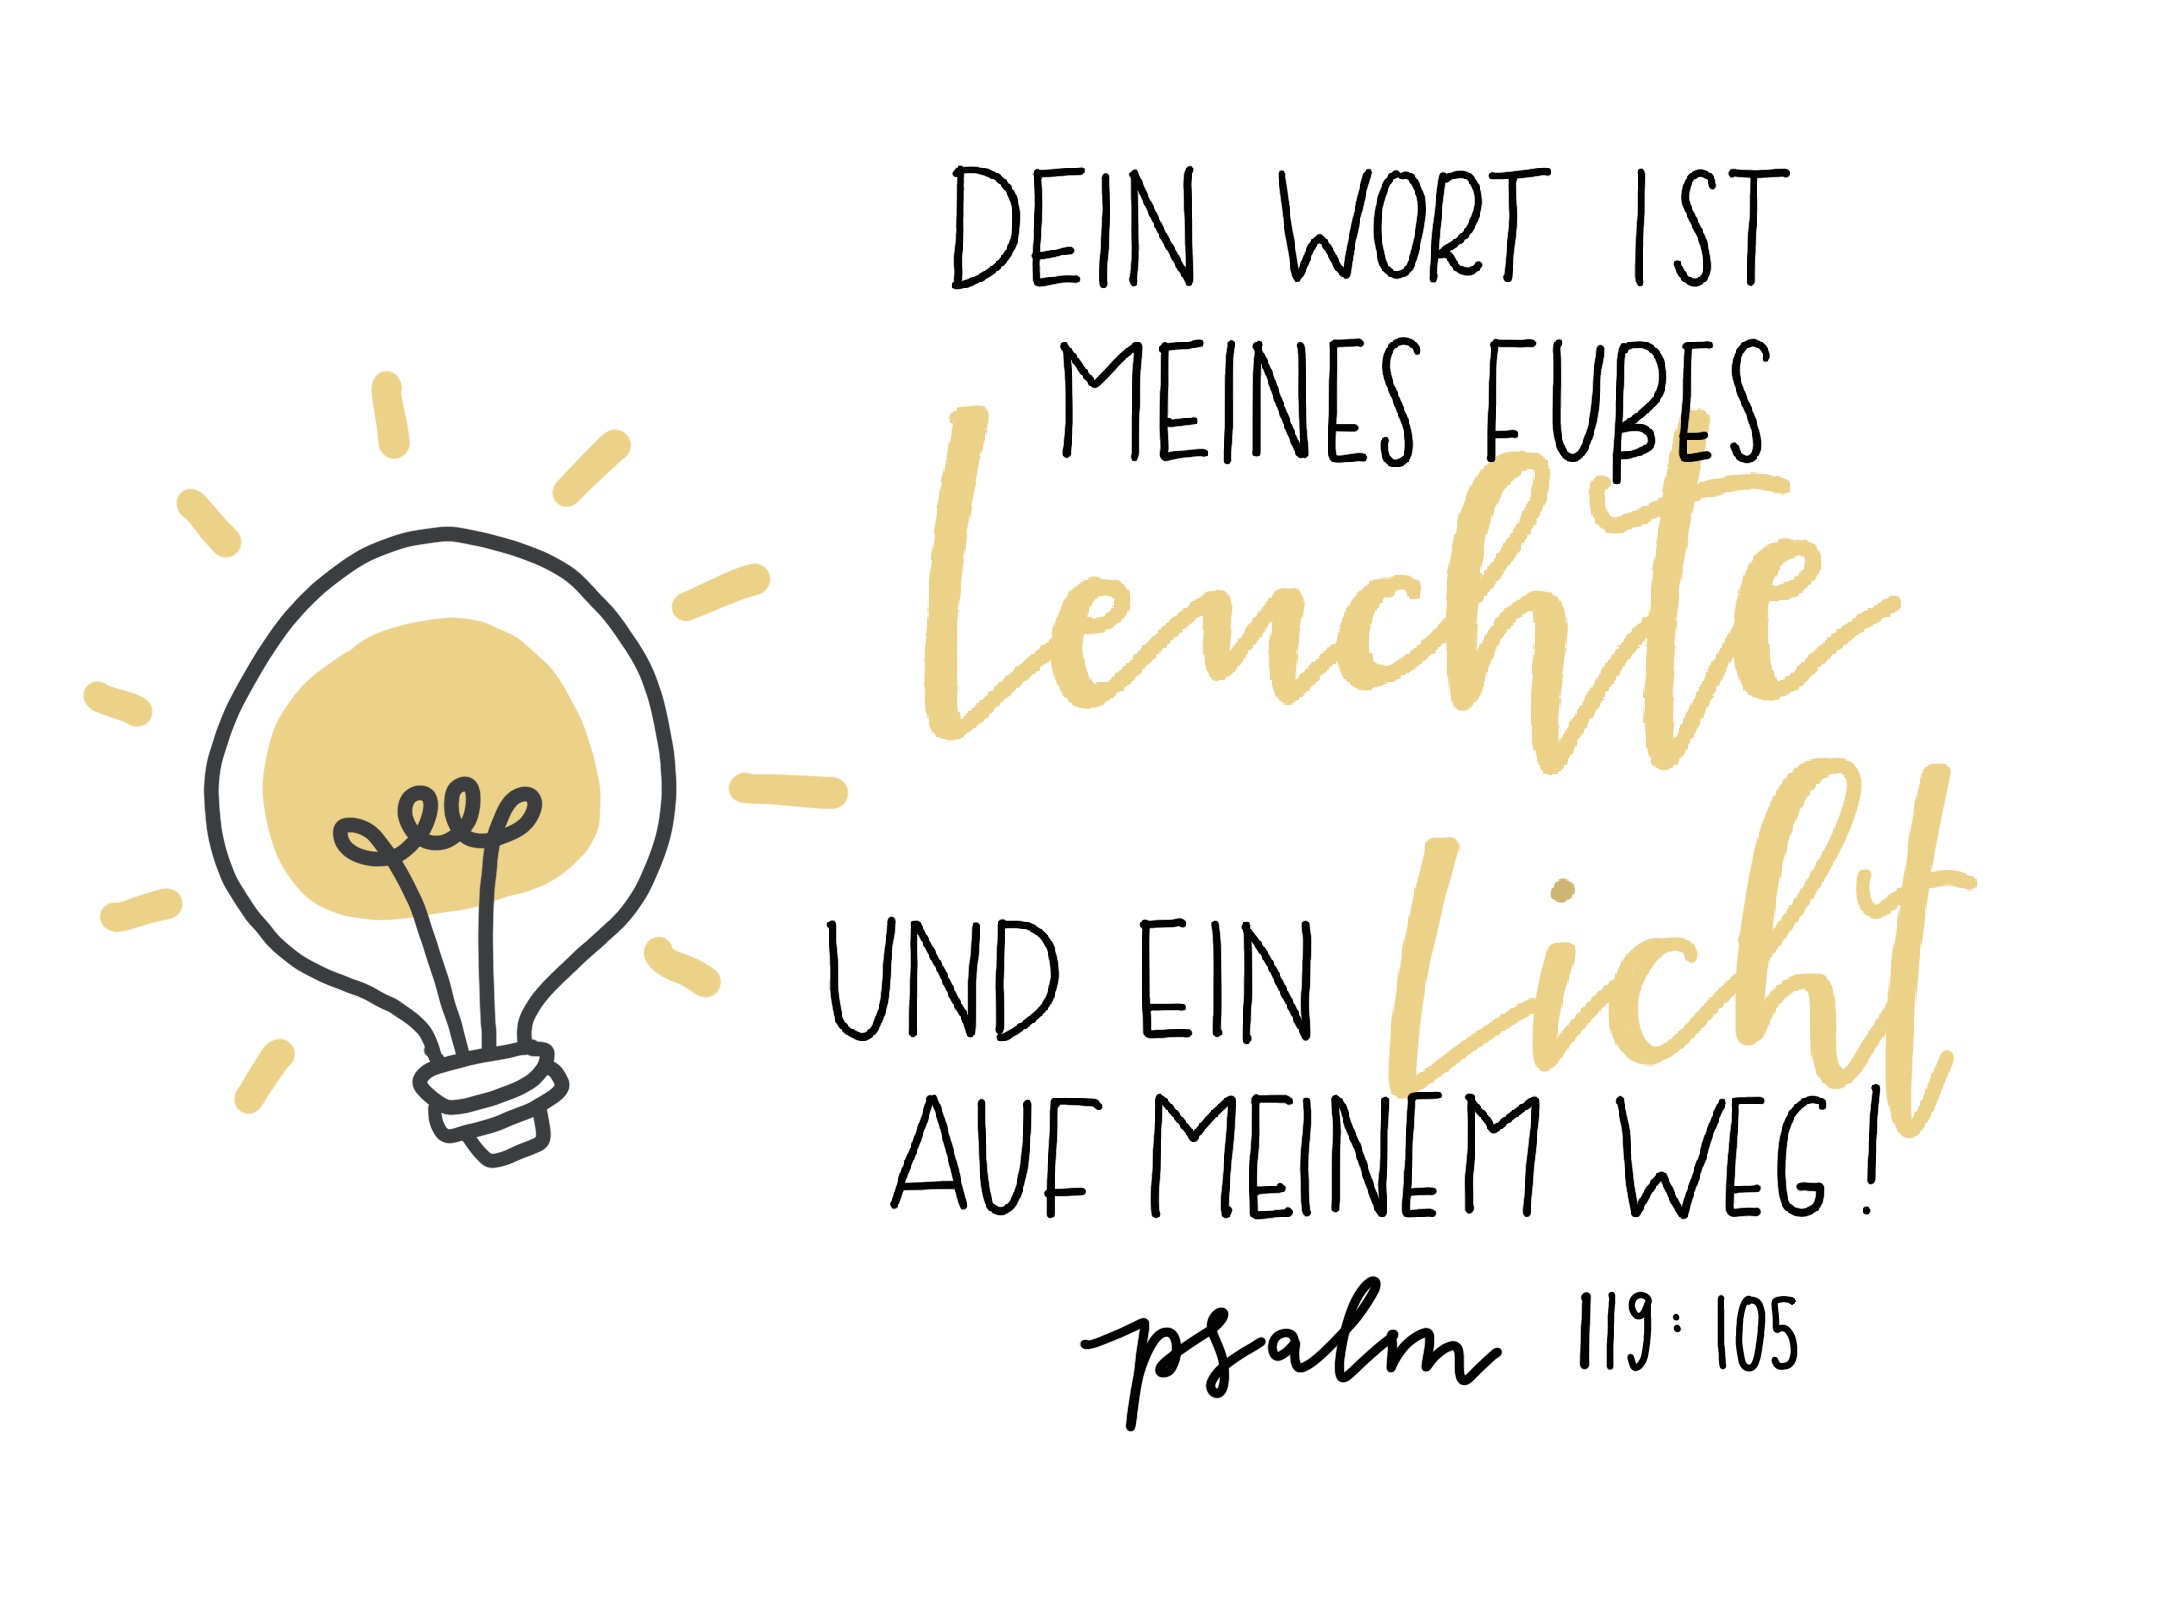 DEIN WORT IST
MEINES FUßES
Leuchte
UND EIN Licht
AUF MEINEM WEG!
psalm 119:105